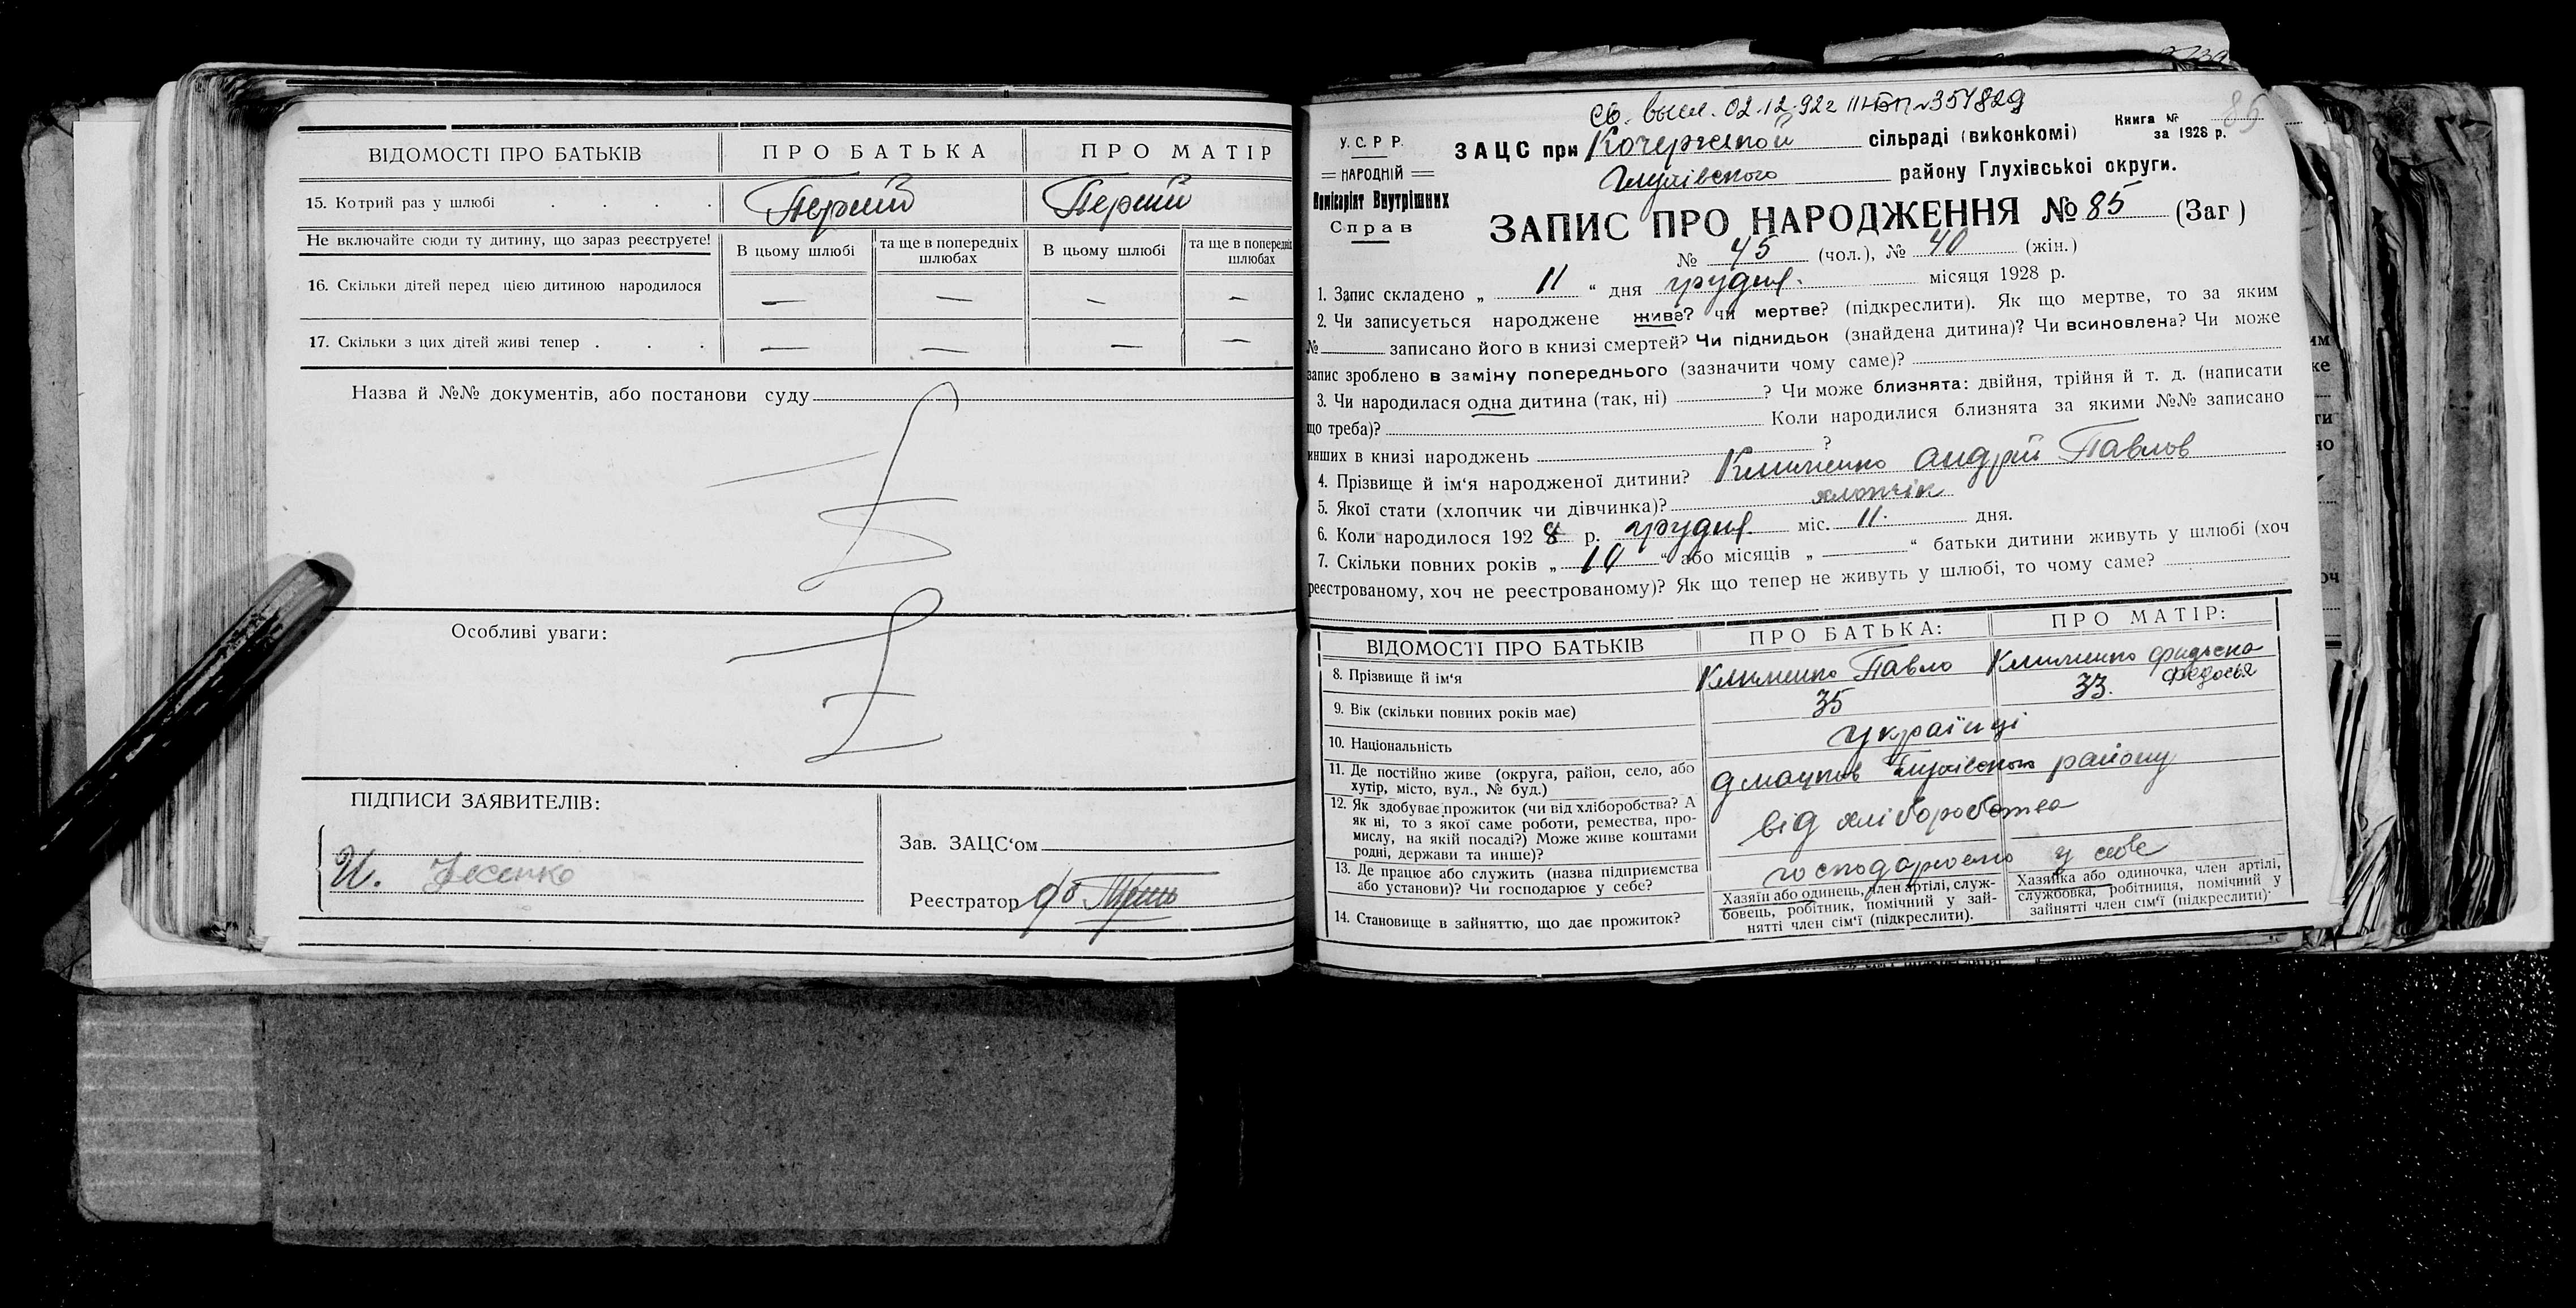 ВІДОМОСТІ ПРО БАТЬКІВ ПРО БАТЬКА ПРО МАТІР
15. Котрий раз у шлюбі Перший Перший
Не включайте сюди ту дитину, що зараз реєструєте! В цьому шлюбі та ще в попередніх шлюбах В цьому шлюбі та ще в попередніх шлюбах
16. Скільки дітей перед цією дитиною народилося — — — —
17. Скільки з цих дітей живі тепер — — — —
Назва й №№ документів, або постанови суду
Особливі уваги:
ПІДПИСИ ЗАЯВИТЕЛІВ:
Зав. ЗАЦС‘ом
И.
Реєстратор
Св. высл. 02.12.92г III-БП №351829
У.С.Р.Р.
НАРОДНІЙ
Комісаріят Внутрішних
Справ
Книга № 85
за 1928 р.
ЗАЦС при сільраді (виконкомі)
Глухівського району Глухівської округи.
ЗАПИС ПРО НАРОДЖЕННЯ № 85 (Заг)
№ 45 (чол.), № 40 (жін.)
1. Запис складено „ 11 “ дня грудня місяця 1928 р.
2. Чи записується народжене живе? чи мертве? (підкреслити). Як що мертве, то за яким
№ записано його в книзі смертей? Чи підкидьок (знайдена дитина)? Чи всиновлена? Чи може
запис зроблено в заміну попереднього (зазначити чому саме)?
3. Чи народилася одна дитина (так, ні) ? Чи може близнята: двійня, трійня й т. д. (написати
що треба)? Коли народилися близнята за якими №№ записано
инших в книзі народжень ?
4. Прізвище й ім‘я народженої дитини? Клименко Андрій Павлов
5. Якої стати (хлопчик чи дівчинка)? хлопчік
6. Коли народилося 1928 р. грудня міс. 11 дня.
7. Скільки повних років „ 10 “ або місяців „ — “ батьки дитини живуть у шлюбі (хоч
реєстрованому, хоч не реєстрованому)? Як що тепер не живуть у шлюбі, то чому саме?
ВІДОМОСТІ ПРО БАТЬКІВ ПРО БАТЬКА: ПРО МАТІР:
8. Прізвище й ім‘я Клименко Павло Клименко
Федосья
9. Вік (скільки повних років має) 35 33.
10. Національність українці
11. Де постійно живе (округа, район, село, або
хутір, місто, вул., № буд.) Глухівського району
12. Як здобуває прожиток (чи від хліборобства? А
як ні, то з якої саме роботи, ремества, про-
мислу, на якій посаді?) Може живе коштами
родні, держави та инше)? від хліборобства
13. Де працює або служить (назва підприємства
або установи)? Чи господарює у себе? у себе
14. Становище в зайняттю, що дає прожиток?
Хазяїн або одинець, член артілі, служ-
бовець, робітник, помічний у зай-
нятті член сім‘ї (підкреслити).
Хазяйка або одиночка, член артілі,
службовка, робітниця, помічний у
зайнятті член сім‘ї (підкреслити).